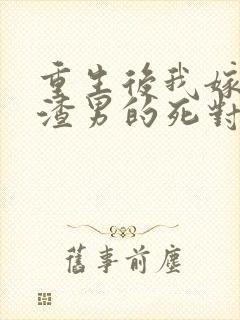 重生後我嫁
渣男的死對
舊事前塵